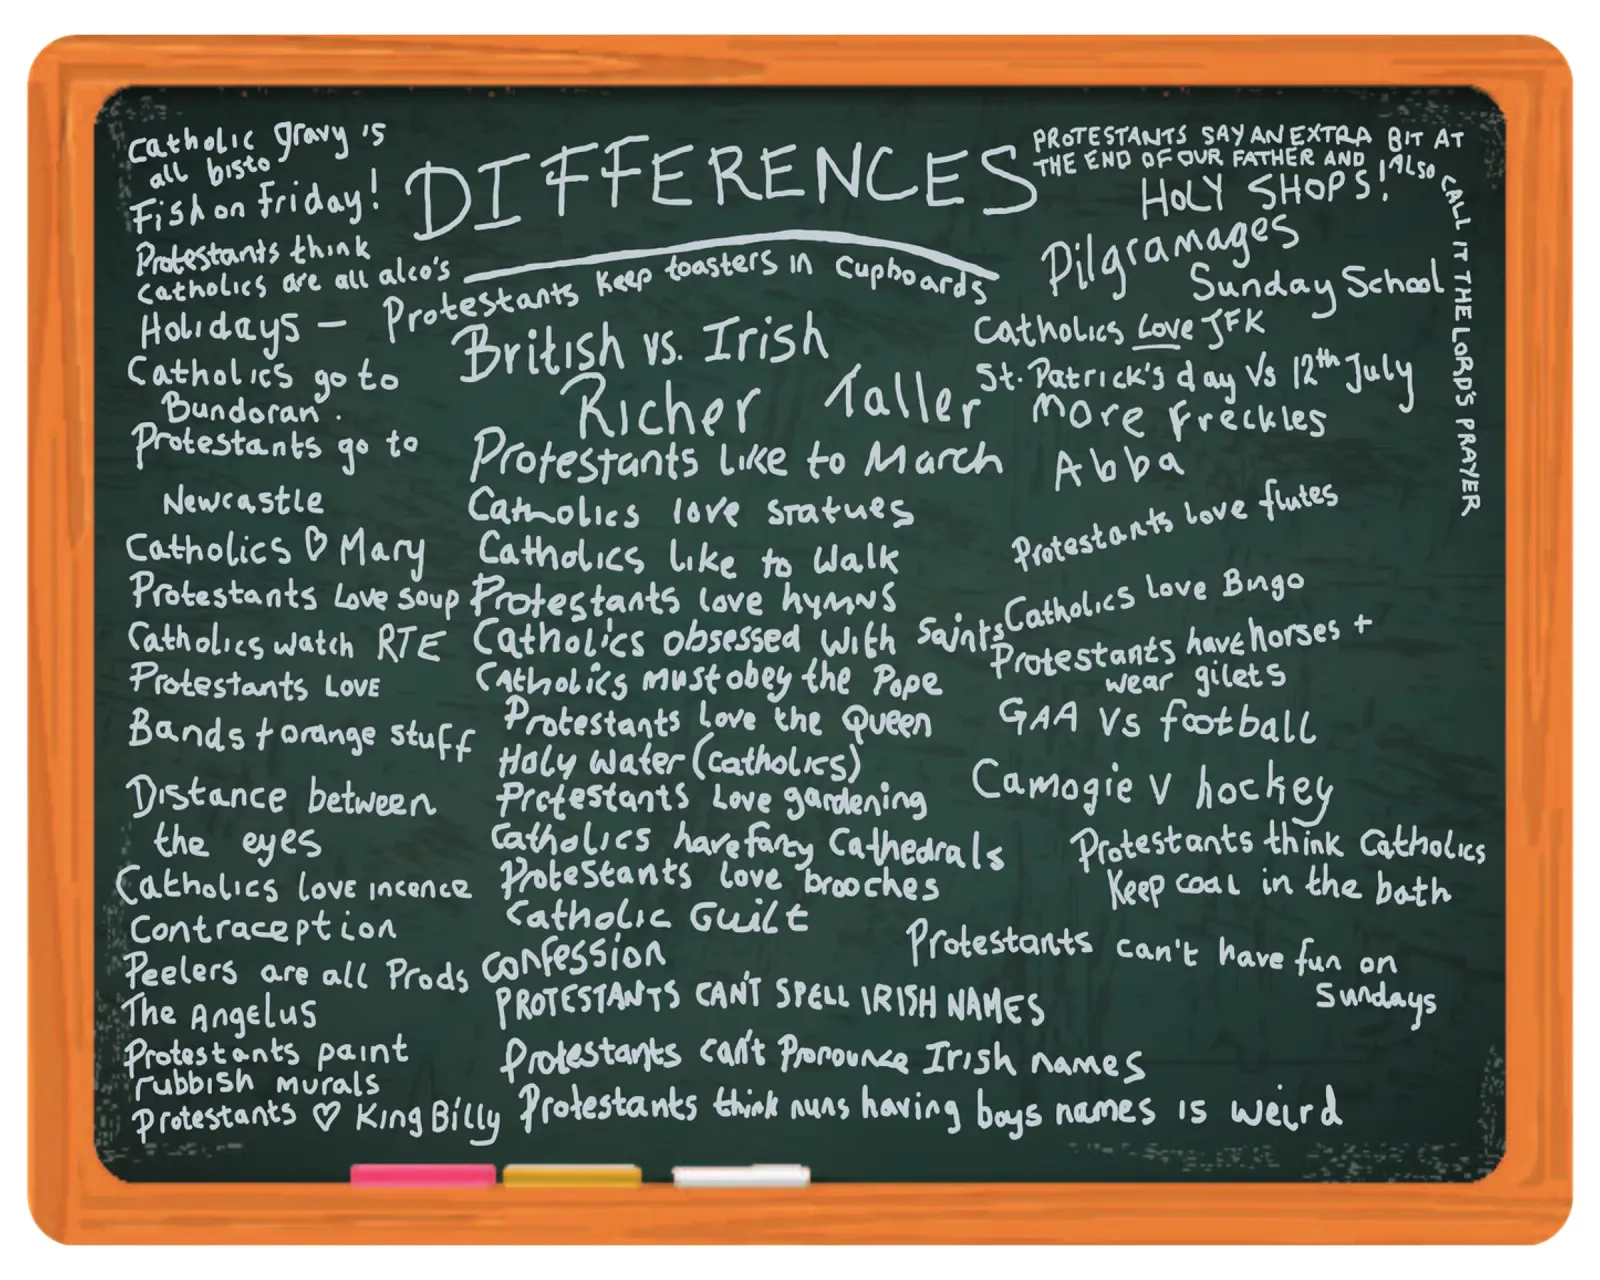 DIFFERENCES
Catholic gravy is
all bisto
Fish on Friday!
Protestants think
Catholics are all alco's
Holidays –
Catholics go to
Bundoran.
Protestants go to
Newcastle
Catholics ♡ Mary
Protestants Love soup
Catholics watch RTE
Protestants LOVE
Bands + orange stuff
Distance between
the eyes
Catholics love incence
Contraception
Peelers are all Prods
The Angelus
Protestants paint
rubbish murals
Protestants ♡ King Billy
Protestants Keep toasters in Cupboards
British vs. Irish
Richer Taller
Protestants like to March
Catholics love statues
Catholics like to Walk
Protestants love hymns
Catholics obsessed with Saints
Catholics must obey the Pope
Protestants Love the Queen
Holy Water (Catholics)
Protestants Love gardening
Catholics have fancy Cathedrals
Protestants Love brooches
Catholic Guilt
Confession
PROTESTANTS CAN'T SPELL IRISH NAMES
Protestants can't Pronounce Irish names
Protestants think nuns having boys names is weird
PROTESTANTS SAY AN EXTRA BIT AT
THE END OF OUR FATHER AND ALSO
CALL IT THE LORD'S PRAYER
HOLY SHOPS!
Pilgramages
Sunday School
Catholics Love JFK
St. Patrick's day Vs 12th July
More Freckles
Abba
Protestants love flutes
Catholics Love Bingo
Protestants have horses +
wear gilets
GAA Vs football
Camogie V hockey
Protestants think Catholics
Keep coal in the bath
Protestants can't have fun on
Sundays